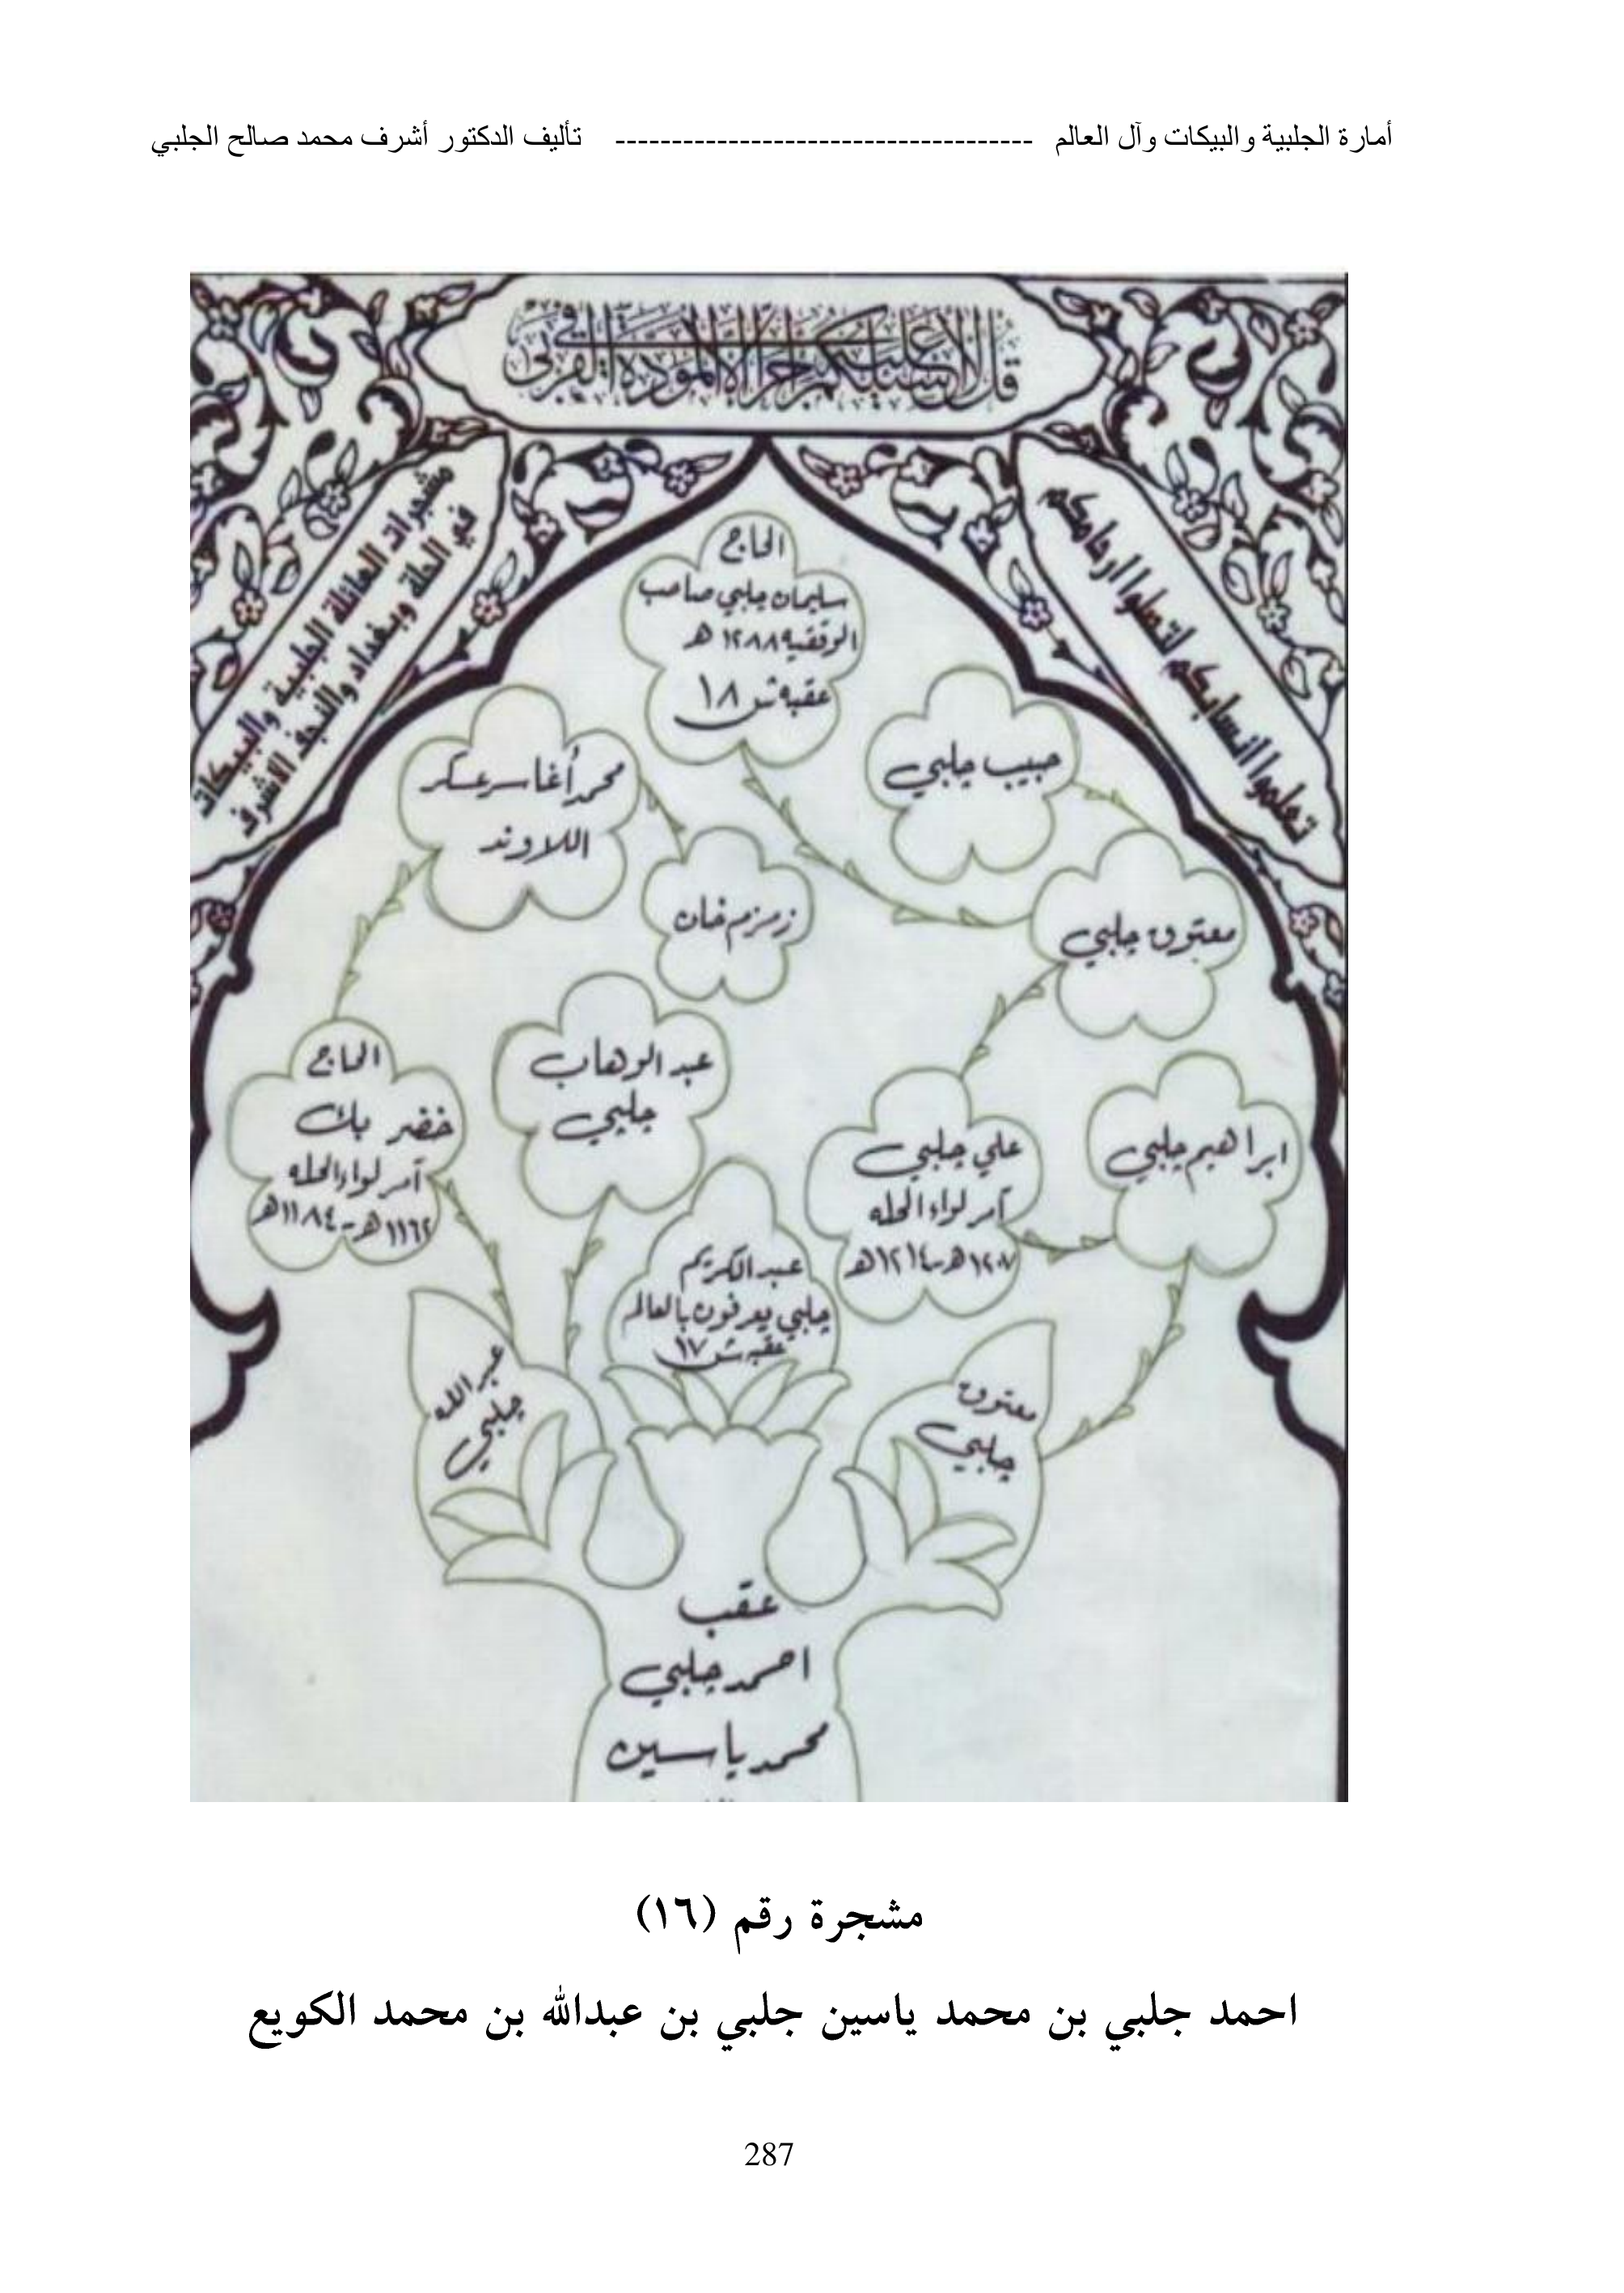 أمارة الجلبية والبيكات وآل العالم ------------------------------------- تأليف الدكتور أشرف محمد صالح الجلبي
قل لا أسئلكم عليه أجرا إلا المودة في القربى
تعلموا أنسابكم لتصلوا ارحامكم
مشجرات العائلة الجلبية والبيكات
في الحلة وبغداد والنجف الاشرف
الحاج
سليمان چلبي صاحب
الوقفيه ١٢٨٨ هـ
عقبه ش ١٨
حبيب چلبي
محمد أغا سر عسكر
اللاوند
زمزم خان
معتوق چلبي
الحاج
خضر بك
آمر لواء الحله
١١٦٢هـ - ١١٨٤هـ
عبد الوهاب
چلبي
علي چلبي
آمر لواء الحله
١٢٠٧هـ - ١٢١٤هـ
ابراهيم چلبي
عبد الكريم
چلبي يعرفون بالعالم
عقبه ش ١٧
عبد الله
چلبي
معتوق
چلبي
عقب
احمد چلبي
محمد ياسين
مشجرة رقم (١٦)
احمد جلبي بن محمد ياسين جلبي بن عبدالله بن محمد الكويع
287